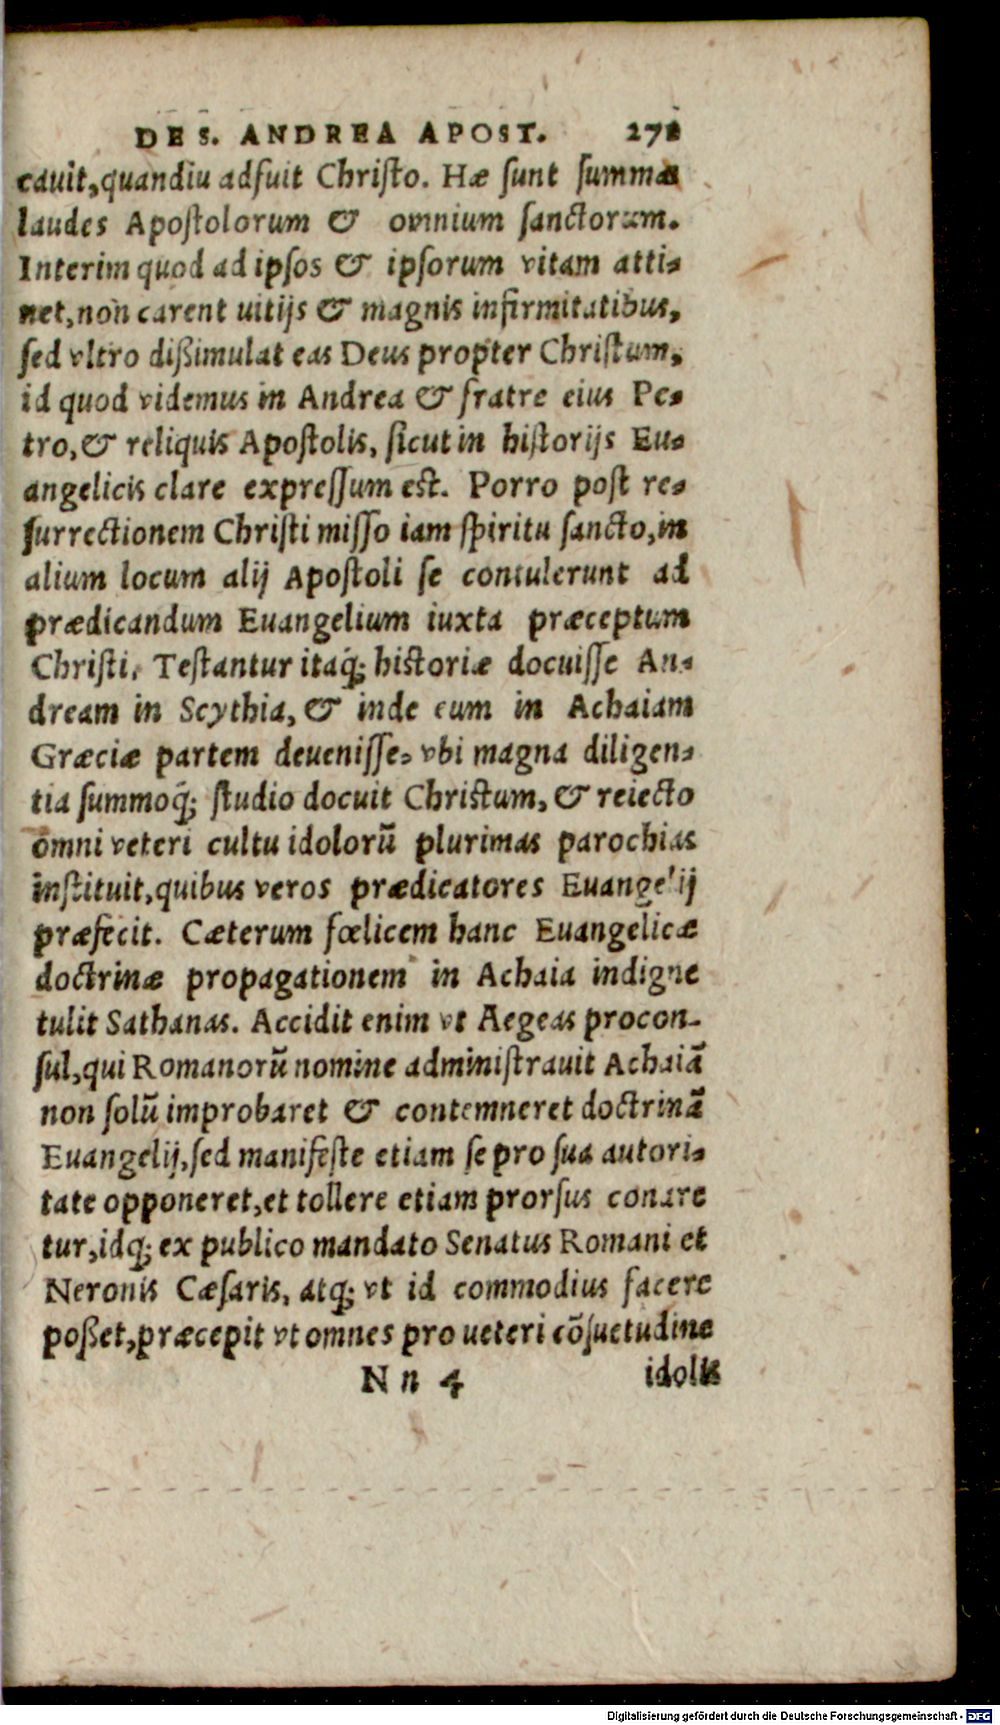 DE S. ANDREA APOST. 271
cauit, quandiu adſuit Chriſto. Hæ ſunt ſummæ
laudes Apoſtolorum & omnium ſanctorum.
Interim quod ad ipſos & ipſorum vitam atti-
net, non carent uitijs & magnis infirmitatibus,
ſed vltro dißimulat eas Deus propter Chriſtum,
id quod videmus in Andrea & fratre eius Pe-
tro, & reliquis Apoſtolis, ſicut in hiſtorijs Eu-
angelicis clare expreſſum eſt. Porro poſt re-
ſurrectionem Chriſti miſſo iam ſpiritu ſancto, in
alium locum alij Apoſtoli ſe contulerunt ad
prædicandum Euangelium iuxta præceptum
Chriſti, Teſtantur itaq́; hiſtoriæ docuiſſe An-
dream in Scythia, & inde eum in Achaiam
Græciæ partem deueniſſe, vbi magna diligen-
tia ſummoq́; ſtudio docuit Chriſtum, & reiecto
omni veteri cultu idolorū plurimas parochias
inſtituit, quibus veros prædicatores Euangelij
præfecit. Cæterum fœlicem hanc Euangelicæ
doctrinæ propagationem in Achaia indigne
tulit Sathanas. Accidit enim vt Aegeas procon-
ſul, qui Romanorū nomine adminiſtrauit Achaiā
non ſolū improbaret & contemneret doctrinā
Euangelij, ſed manifeſte etiam ſe pro ſua autori-
tate opponeret, et tollere etiam prorſus conare
tur, idq; ex publico mandato Senatus Romani et
Neronis Cæſaris, atq; vt id commodius facere
poßet, præcepit vt omnes pro ueteri cōſuetudine
N n 4 idolis
Digitalisierung gefördert durch die Deutsche Forschungsgemeinschaft - DFG